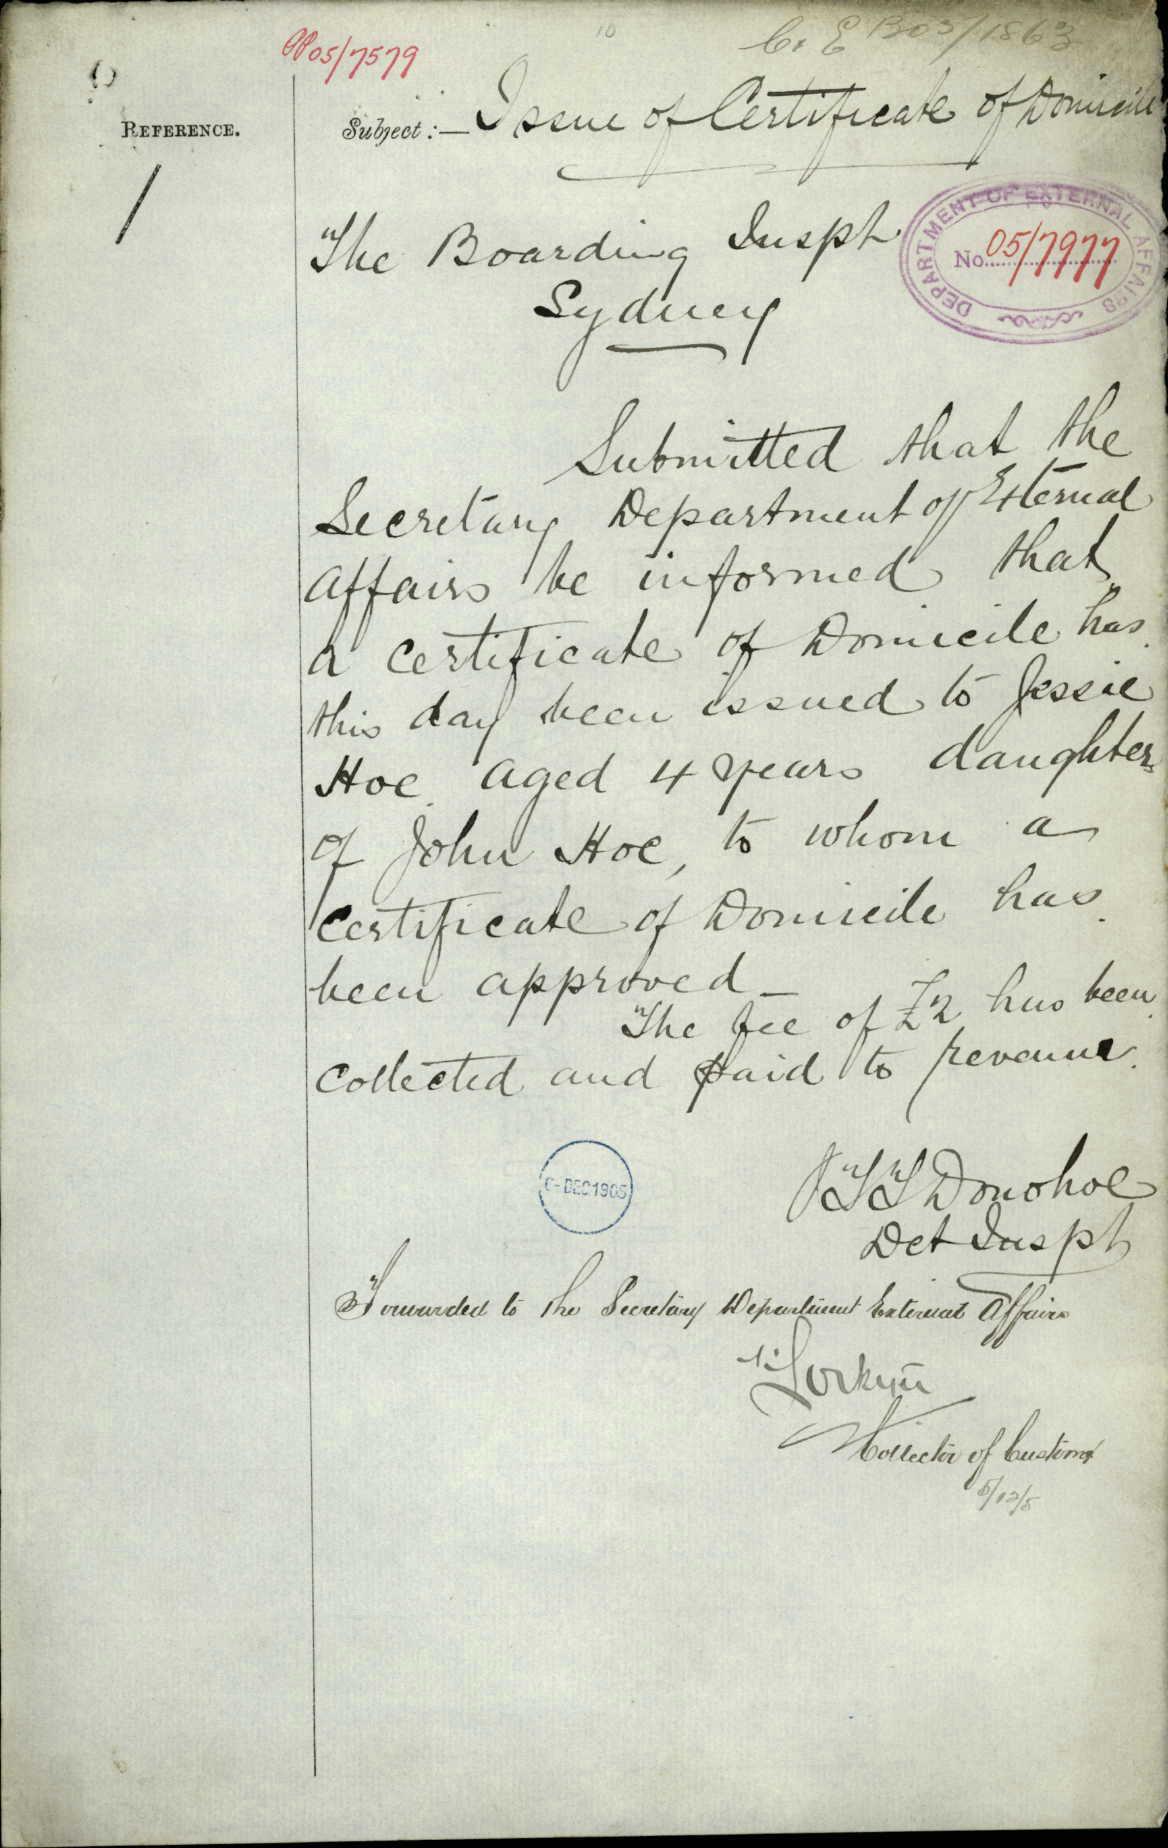 05/7579
10
C. & E B05/1863
REFERENCE.
Subject:— Issue of Certificate of Domicile
1
DEPARTMENT OF EXTERNAL AFFAIRS
No. 05/7977
The Boarding Inspt
Sydney
Submitted that the
Secretary Department of External
Affairs be informed that
a certificate of Domicile has
this day been issued to Jessie
Hoe aged 4 years daughter
of John Hoe, to whom a
certificate of Domicile has
been approved —
The fee of £2 has been
collected and paid to revenue.
Donohoe
Det Inspt
6 - DEC 1905
Forwarded to the Secretary Department External Affairs
Collector of Customs
5/12/5